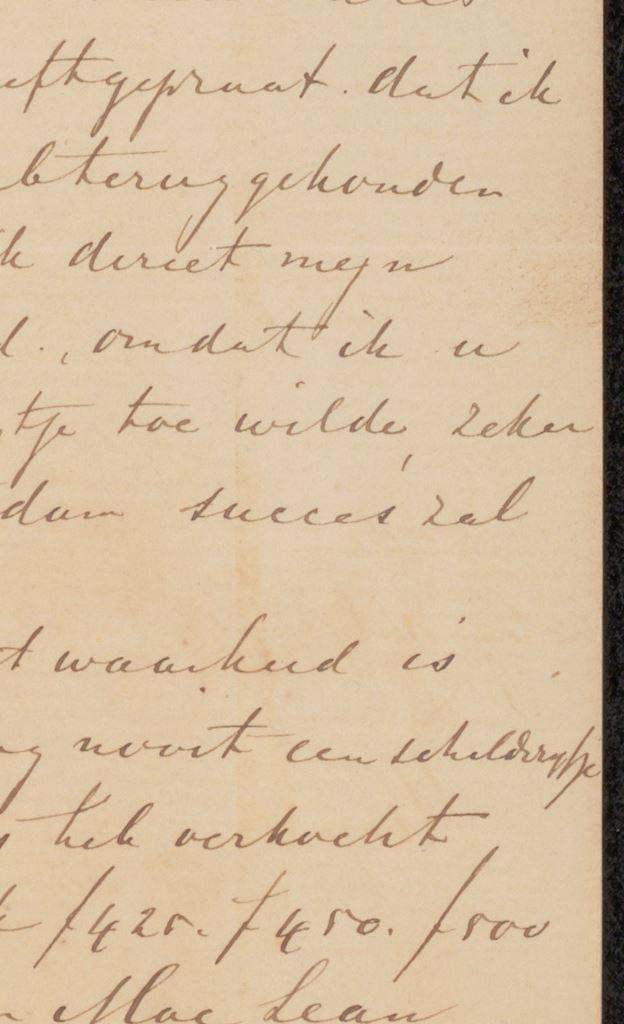 eftgepraat. dat ik
b terug gehouden
k direct mijn
d., omdat ik u
tje toe wilde, zeker
dam succes zal
t waarheid is
g nooit een schilderijtje
heb verkocht
f 425. f 450. f 500
n Mac Lean